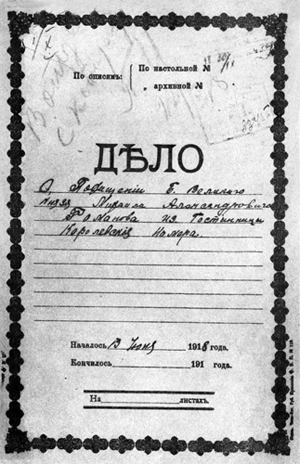 По описямъ:
По настольной №
„ архивной №
ДѢЛО
О Похищеніи Б. Великаго
Князя Михаила Александровича
Романова из Гостинницы
Королевскія Номера.
Началось 13 Июня 1918 года.
Кончилось 191 года.
На листахъ.